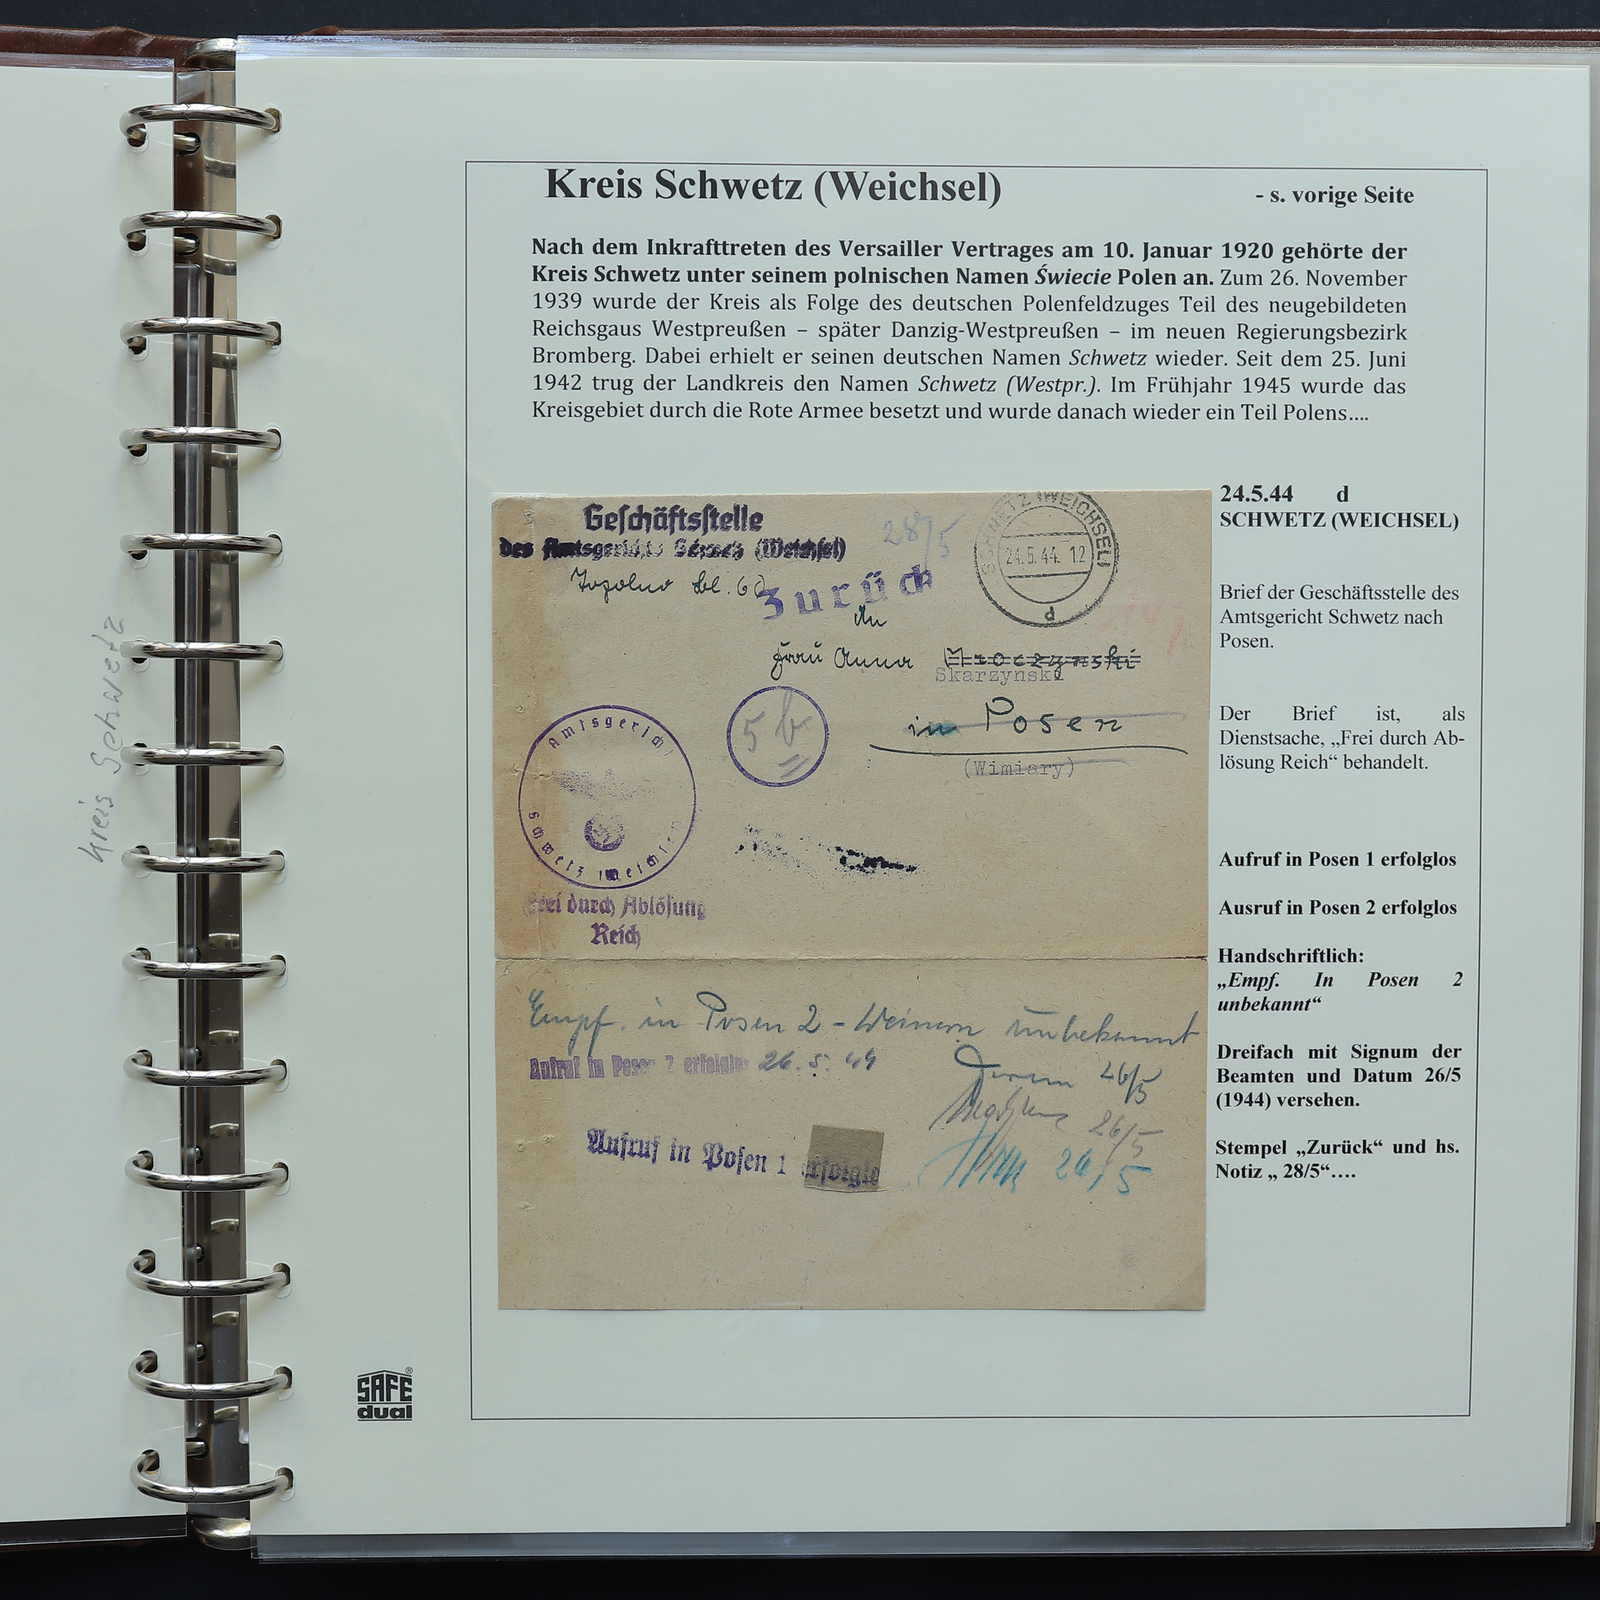 Kreis Schwetz (Weichsel) - s. vorige Seite
Nach dem Inkrafttreten des Versailler Vertrages am 10. Januar 1920 gehörte der
Kreis Schwetz unter seinem polnischen Namen Świecie Polen an. Zum 26. November
1939 wurde der Kreis als Folge des deutschen Polenfeldzuges Teil des neugebildeten
Reichsgaus Westpreußen – später Danzig-Westpreußen – im neuen Regierungsbezirk
Bromberg. Dabei erhielt er seinen deutschen Namen Schwetz wieder. Seit dem 25. Juni
1942 trug der Landkreis den Namen Schwetz (Westpr.). Im Frühjahr 1945 wurde das
Kreisgebiet durch die Rote Armee besetzt und wurde danach wieder ein Teil Polens....
Geschäftsstelle
des Amtsgerichts Schwetz (Weichsel)
28/5
Zurück
SCHWETZ (WEICHSEL)
24.5.44. 12
d
An
Frau Anna Mroczynski
Skarzynski
in Posen
(Wimiary)
5b
Amtsgericht
Schwetz Weichsel
Frei durch Ablösung
Reich
Empf. in Posen 2 - unbekannt
Aufruf in Posen 2 erfolglos 26.5.44
26/5
26/5
Aufruf in Posen 1 erfolglo
26/5
24.5.44 d
SCHWETZ (WEICHSEL)
Brief der Geschäftsstelle des
Amtsgericht Schwetz nach
Posen.
Der Brief ist, als
Dienstsache, „Frei durch Ab-
lösung Reich“ behandelt.
Aufruf in Posen 1 erfolglos
Ausruf in Posen 2 erfolglos
Handschriftlich:
„Empf. In Posen 2
unbekannt“
Dreifach mit Signum der
Beamten und Datum 26/5
(1944) versehen.
Stempel „Zurück“ und hs.
Notiz „ 28/5“....
Kreis Schwetz
SAFE®
dual